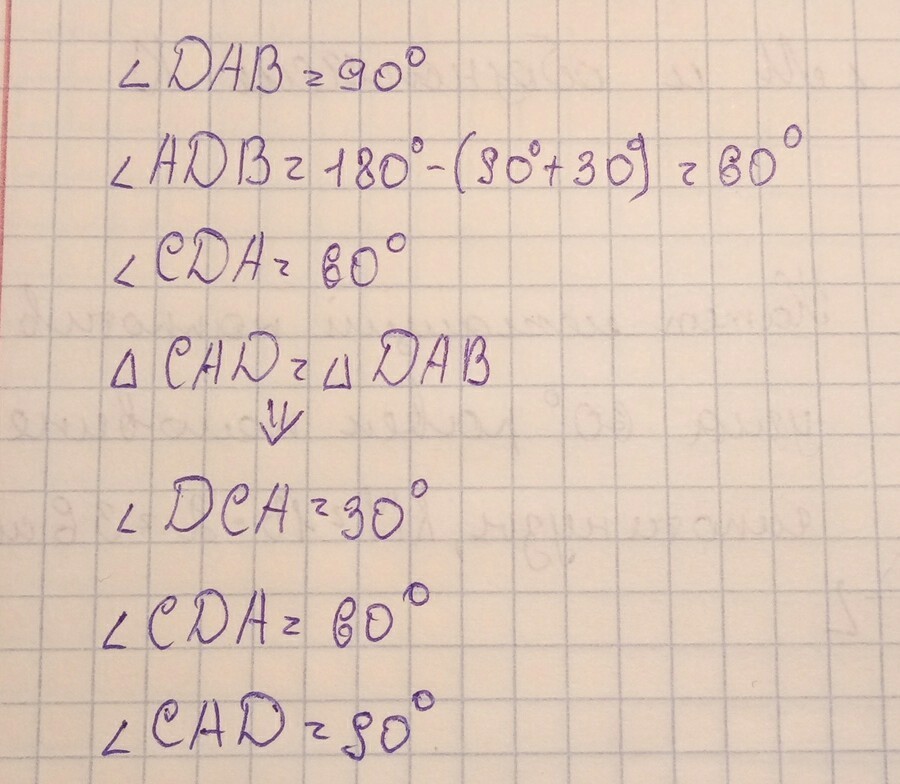 ∠DAB = 90°
∠ADB = 180° - (90° + 30°) = 60°
∠CDA = 60°
△CAD = △DAB
⇓
∠DCA = 30°
∠CDA = 60°
∠CAD = 90°